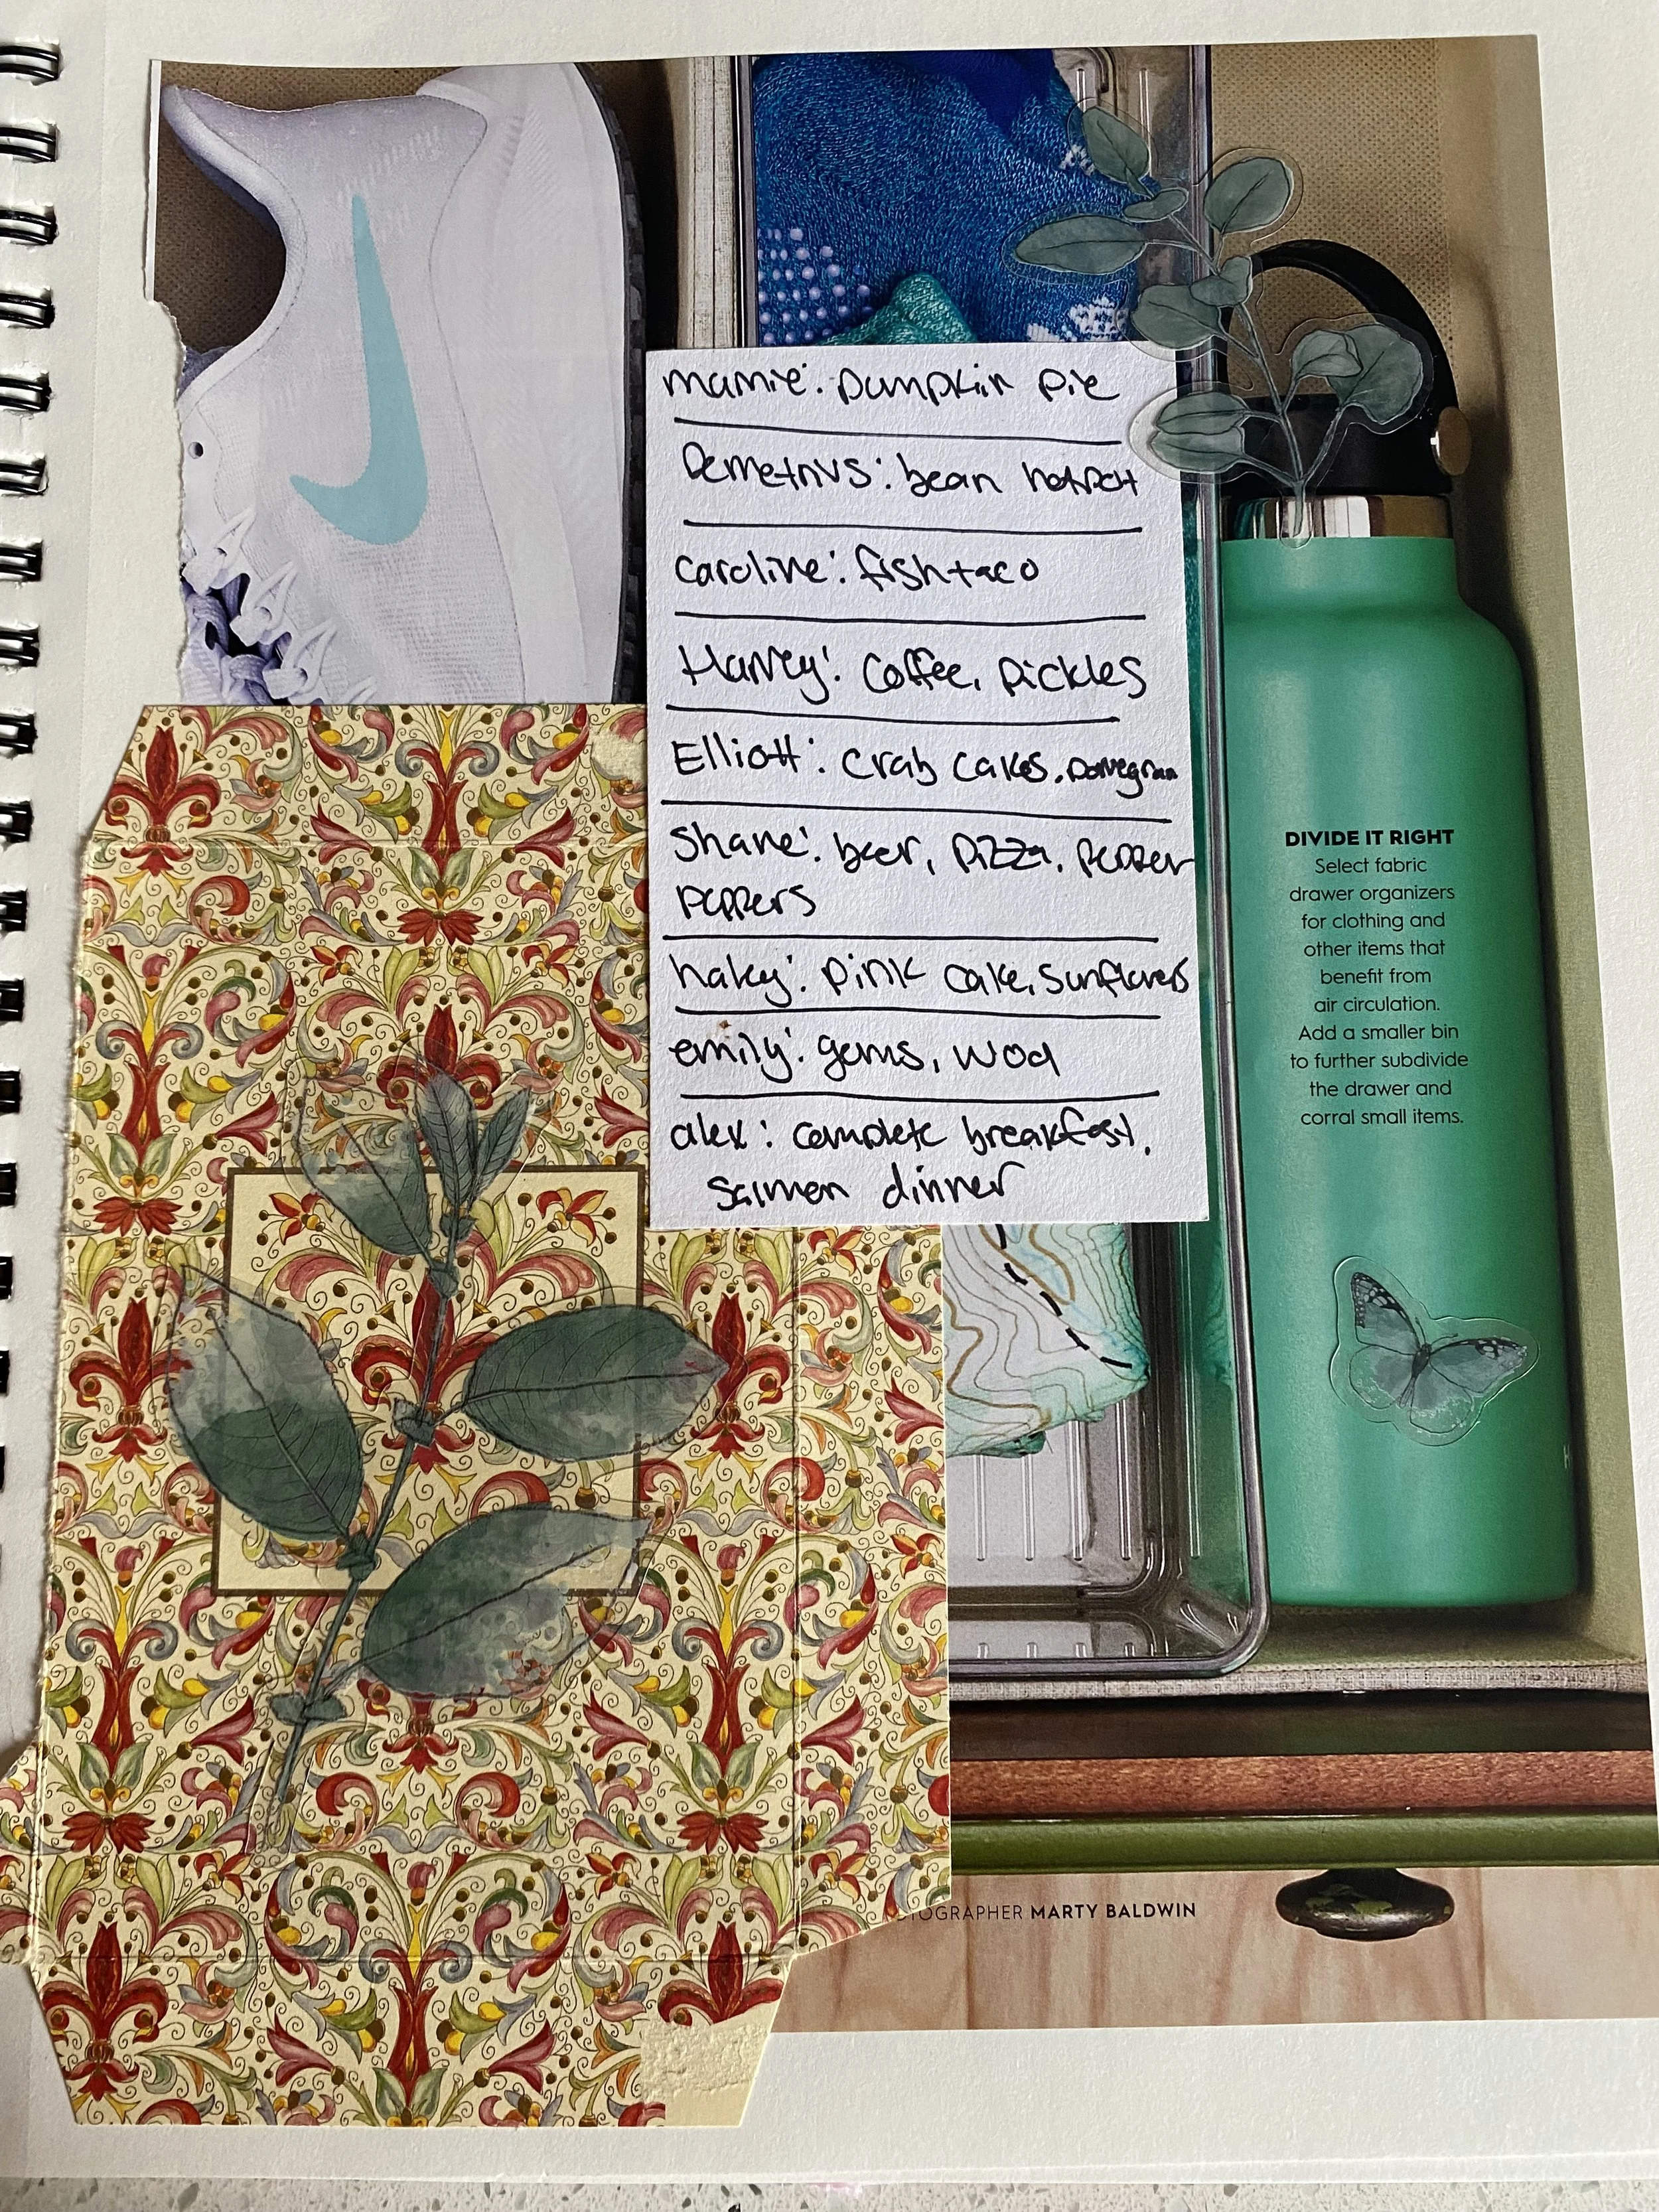 mamie: pumpkin pie
Demetrius: bean hotpot
Caroline: fish taco
Harvey: Coffee, Pickles
Elliott: Crab Cakes, pomegran
Shane: beer, pizza, pepper
peppers
haley: pink cake, sunflowers
emily: gems, wool
alex: complete breakfast,
salmon dinner
DIVIDE IT RIGHT
Select fabric
drawer organizers
for clothing and
other items that
benefit from
air circulation.
Add a smaller bin
to further subdivide
the drawer and
corral small items.
TOGRAPHER MARTY BALDWIN